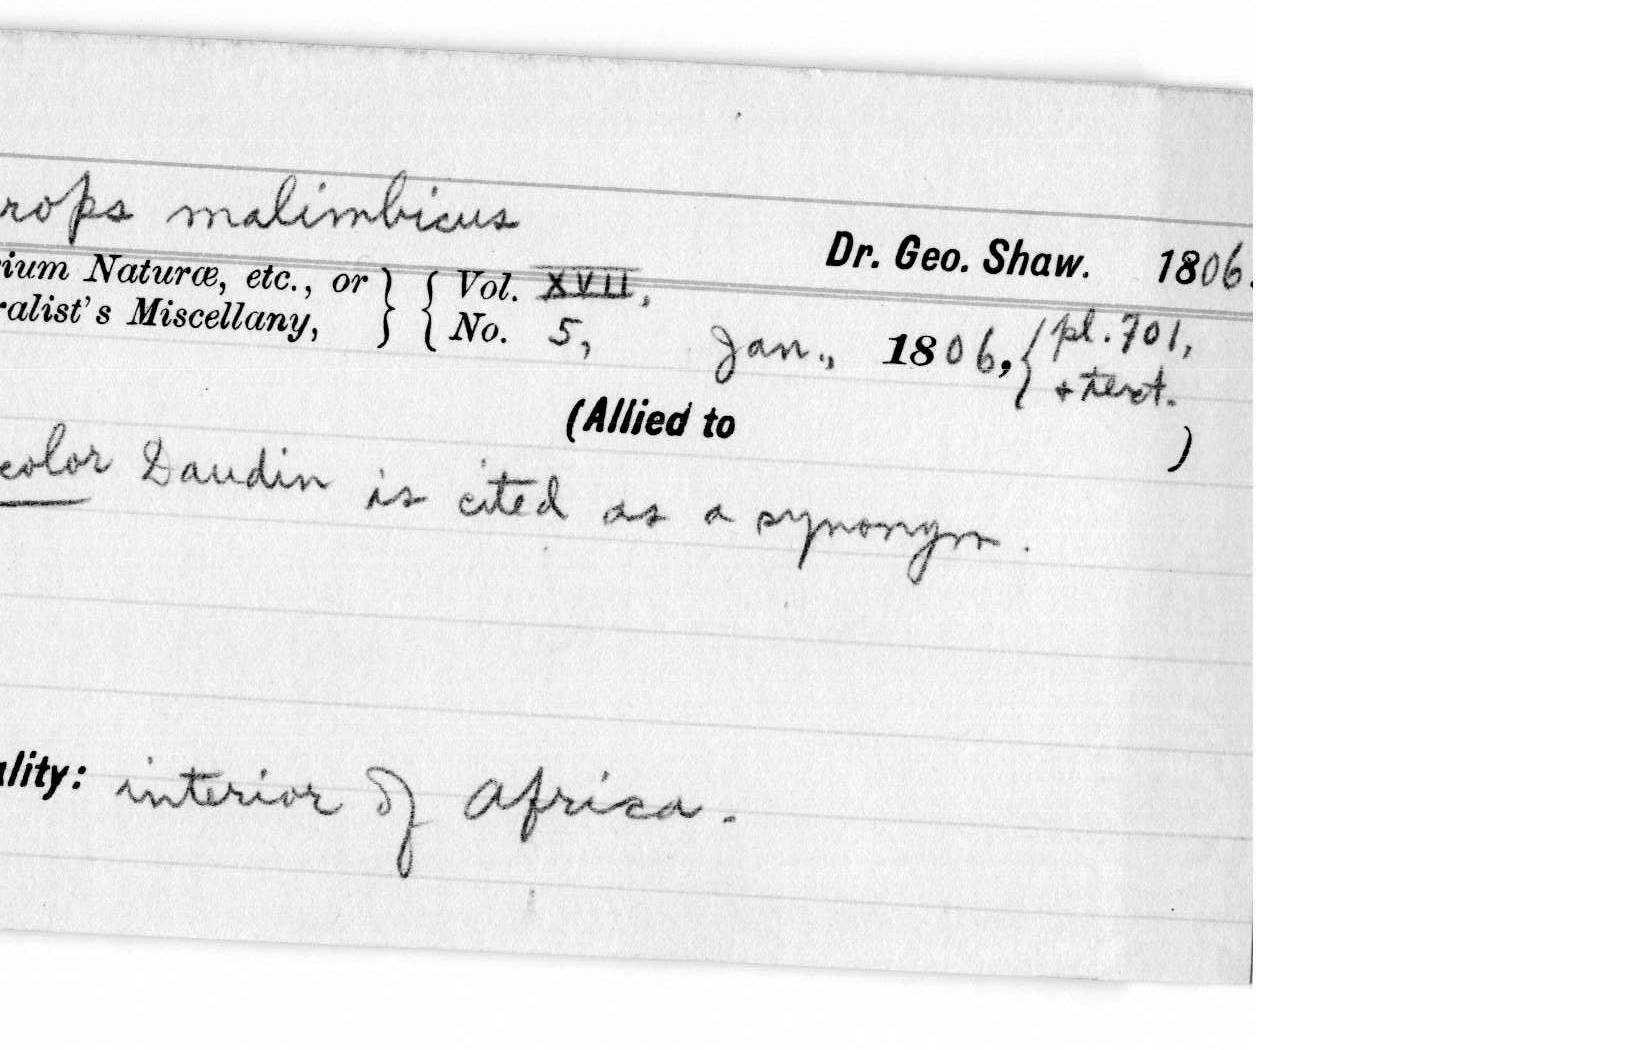 rops malimbicus
Dr. Geo. Shaw. 1806.
ium Naturæ, etc., or } { Vol. XVII,
ralist's Miscellany, } { No. 5, Jan., 1806, { pl. 701,
+ text.
(Allied to )
color Daudin is cited as a synonym.
ality: interior of Africa.